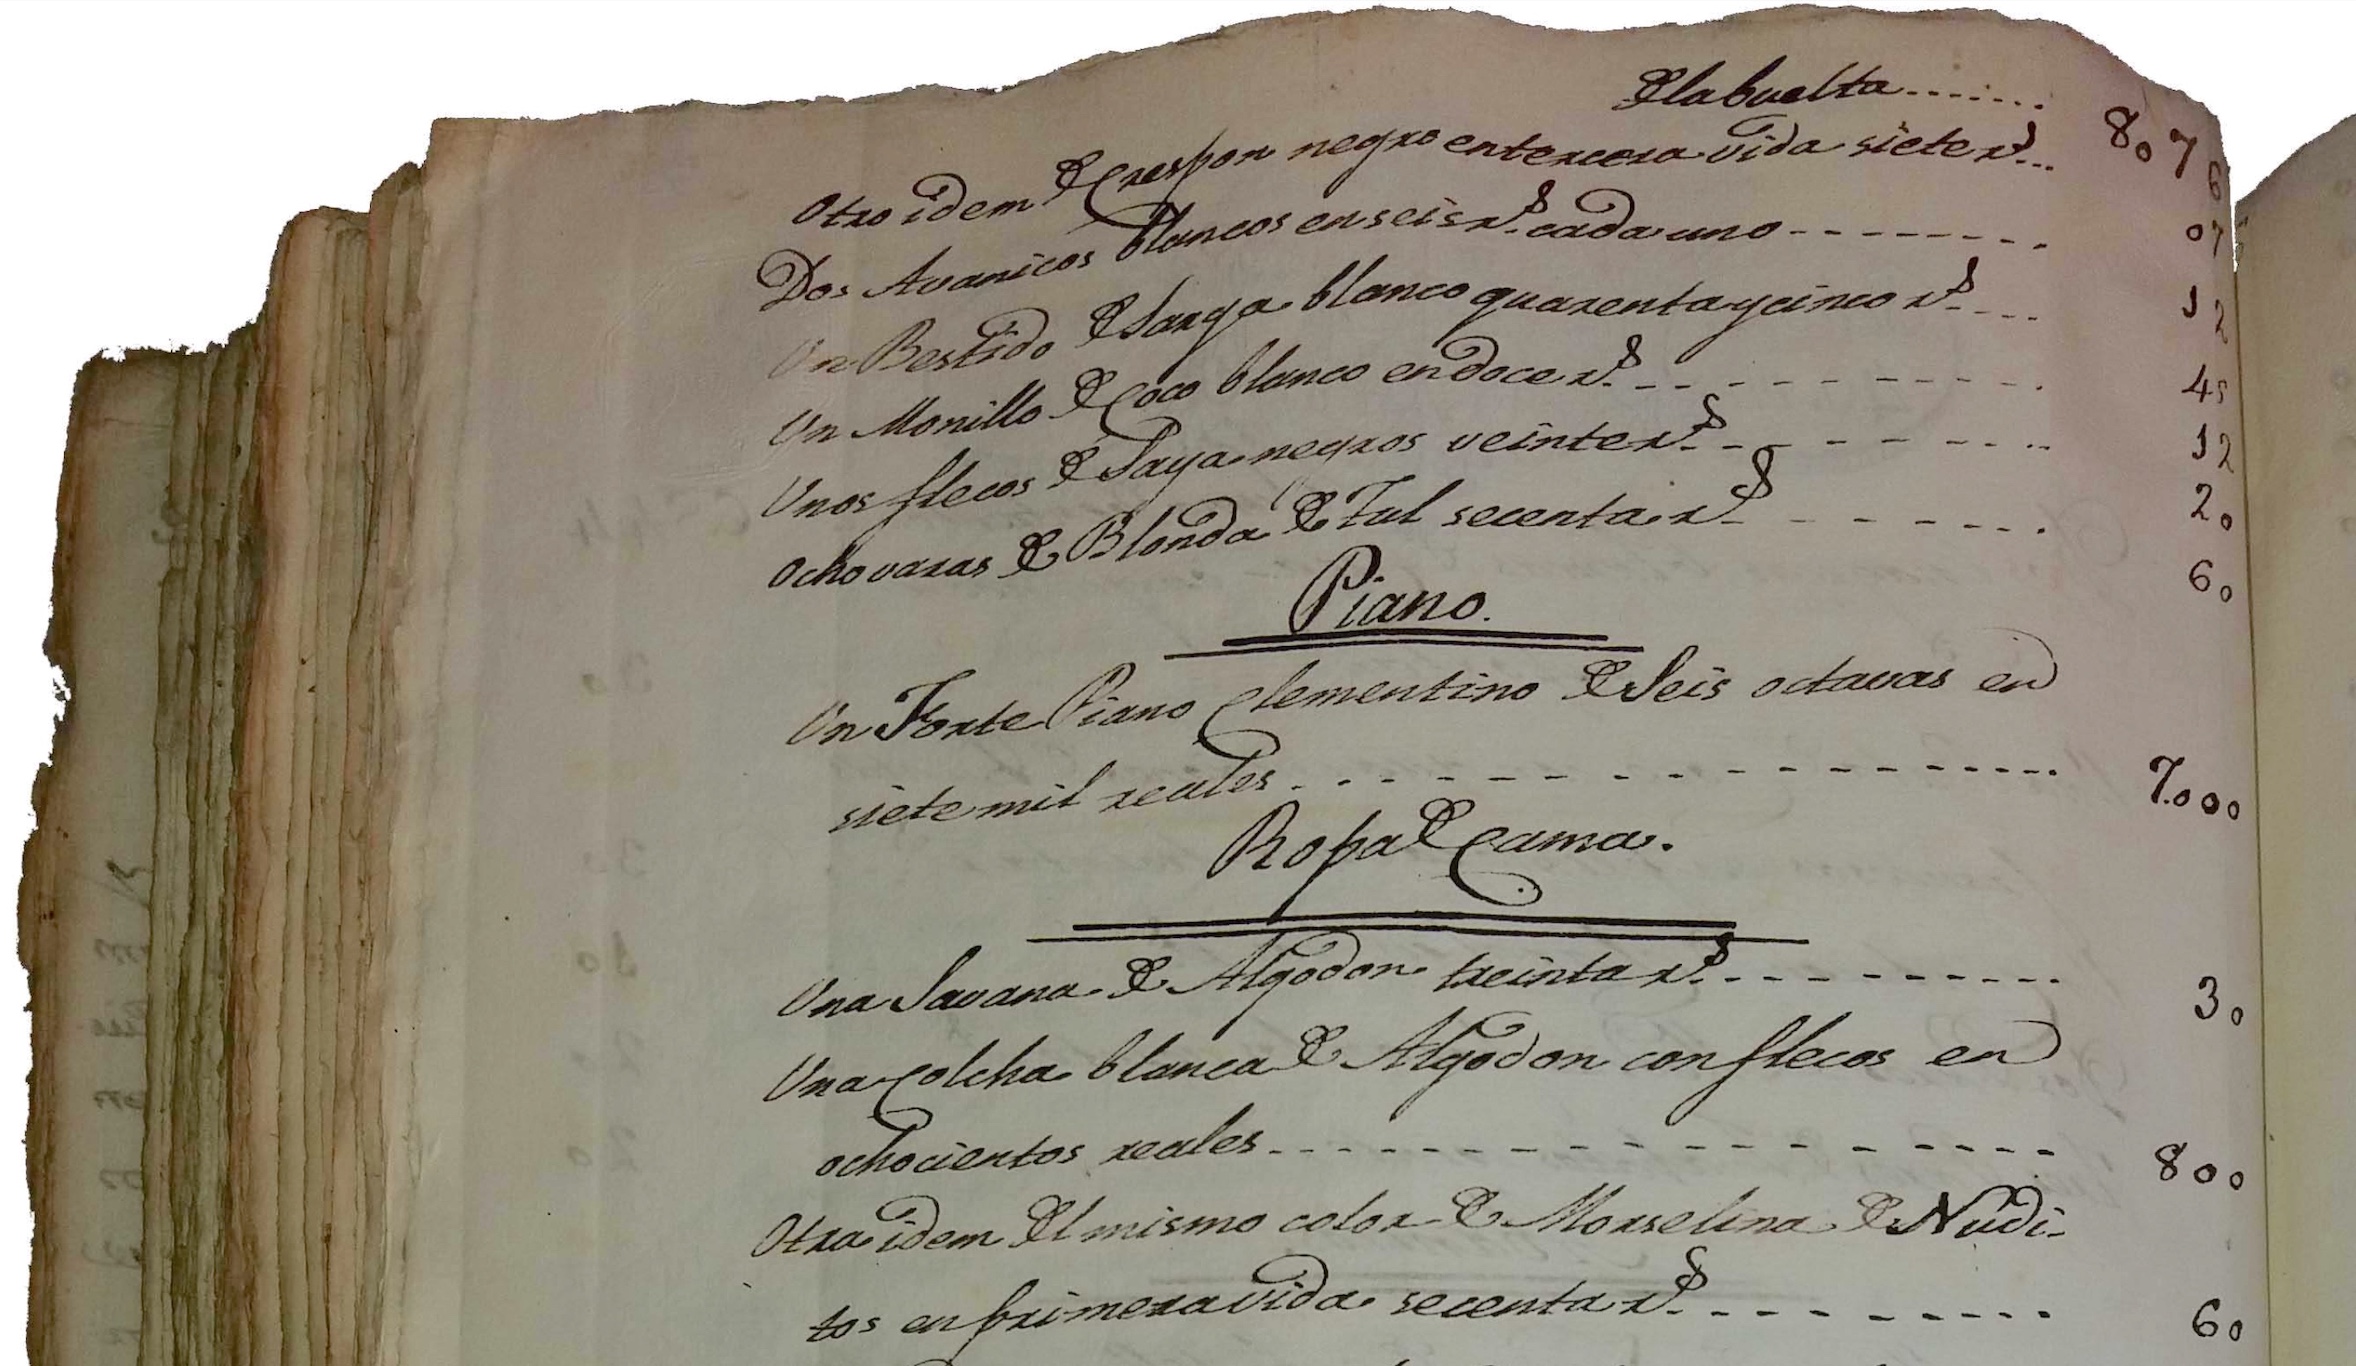 De la buelta....... 8076
Otro idem de Crespon negro en tercera vida siete rs... 07
Dos Avanicos blancos en seis rs. cada uno - - - - - - - - 12
Un Bestido de Sarga blanco quarenta y cinco rs. - - - 45
Un Monillo de Coco blanco en doce rs. - - - - - - - - - 12
Unos flecos de Saya negros veinte rs. - - - - - - - - 20
Ocho varas de Blonda de Tul secenta rs. - - - - - - - 60
Piano.
Un Forte Piano Clementino de Seis octavas en
siete mil reales - - - - - - - - - - - - - - - - - 7.000
Ropa de Cama.
Una Savana de Algodon treinta rs. - - - - - - - - - - 30
Una Colcha blanca de Algodon con flecos en
ochocientos reales - - - - - - - - - - - - - - - - 800
Otra idem del mismo color de Morselina de Nudi-
tos en primera vida secenta rs. - - - - - - - - - 60